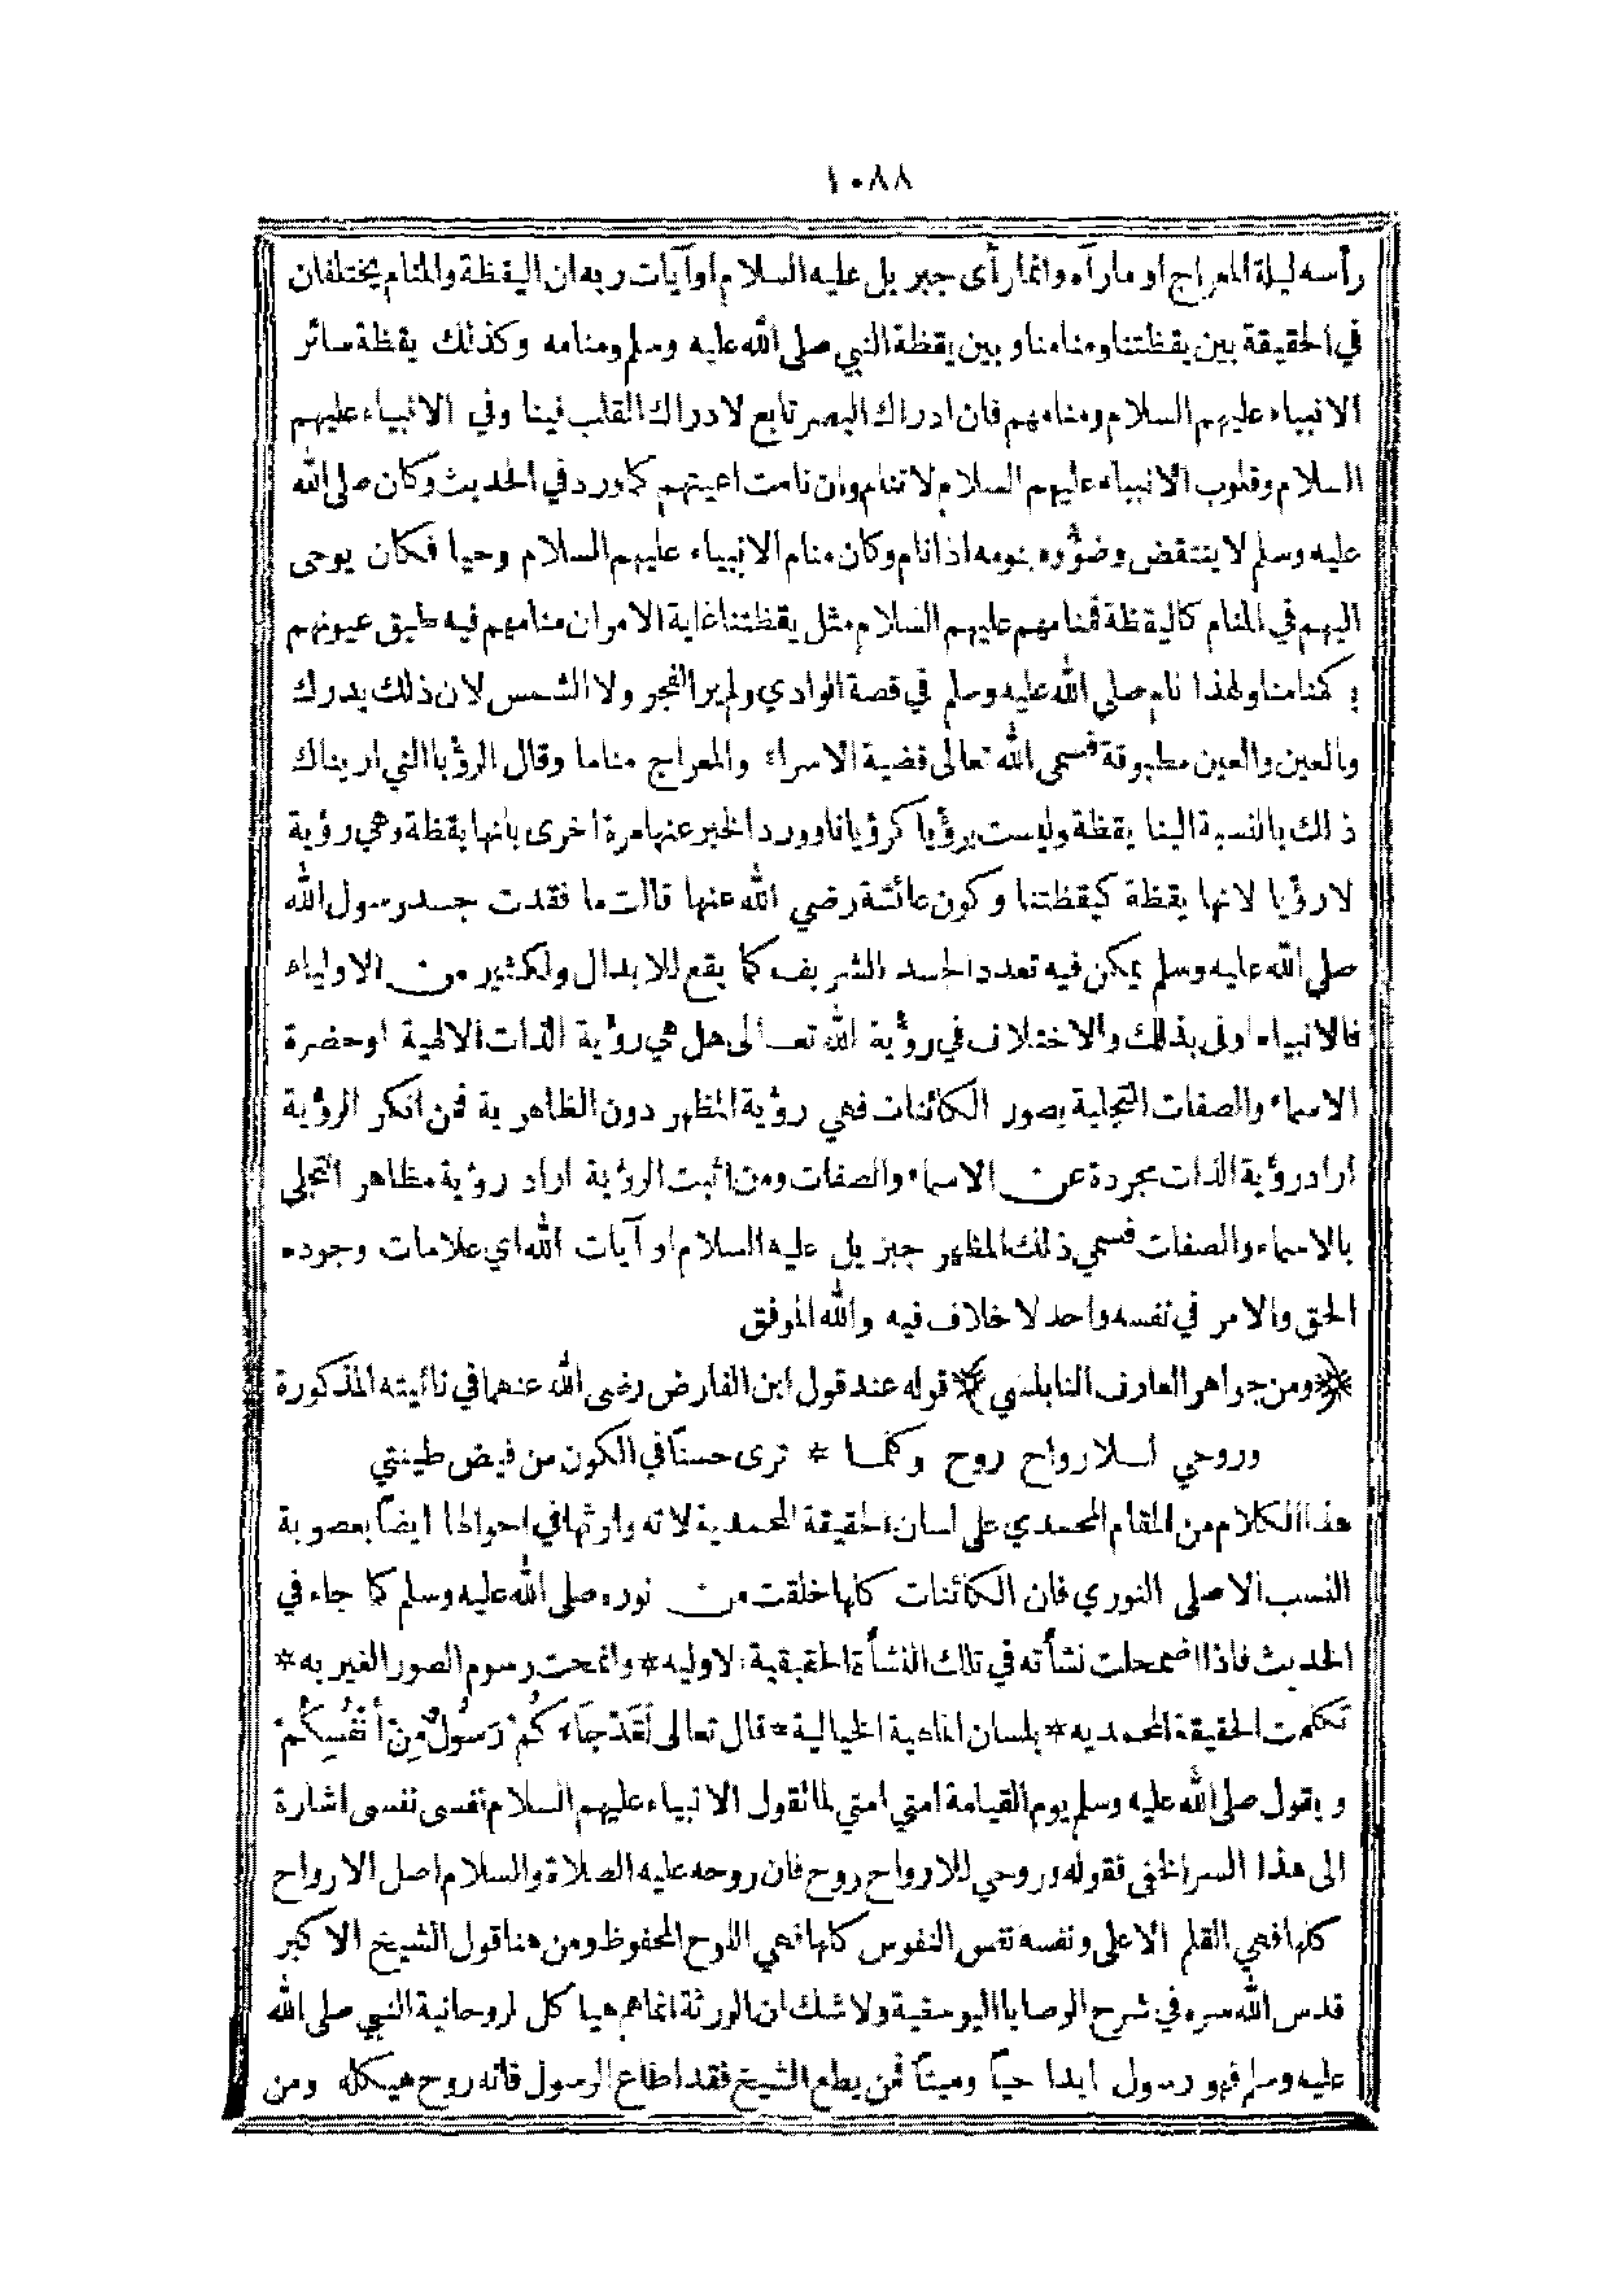 ١٠٨٨
رأسه ليلة المعراج او ما رآه وانما رأى جبريل عليه السلام او آيات ربه ان اليقظة والمنام يختلفان
في الحقيقة بين يقظتنا ومنامنا وبين يقظة النبي صلى الله عليه وسلم ومنامه وكذلك يقظة سائر
الانبياء عليهم السلام ومنامهم فان ادراك البصر تابع لادراك القلب فينا وفي الانبياء عليهم
السلام وقلوب الانبياء عليهم السلام لا تنام وان نامت اعينهم كما ورد في الحديث وكان صلى الله
عليه وسلم لا ينتقض وضوؤه بنومه اذا نام وكان منام الانبياء عليهم السلام وحيا فكان يوحى
اليهم في المنام كاليقظة فمنامهم عليهم السلام مثل يقظتنا غاية الامر ان منامهم فيه طبق عيونهم
كمنامنا ولهذا نام صلى الله عليه وسلم في قصة الوادي ولم ير الفجر ولا الشمس لان ذلك يدرك
بالعين والعين مطبوقة فسمى الله تعالى قضية الاسراء والمعراج مناما وقال الرؤيا التي اريناك
ذلك بالنسبة الينا يقظة وليست برؤيا كرؤيانا وورد الخبر عنها مرة اخرى بانها يقظة وهي رؤية
لا رؤيا لانها يقظة كيقظتنا وكون عائشة رضي الله عنها قالت ما فقدت جسد رسول الله
صلى الله عليه وسلم يمكن فيه تعدد الجسد الشريف كما يقع للابدال ولكثير من الاولياء
فالانبياء اولى بذلك والاختلاف في رؤية الله تعالى هل هي رؤية الذات الالهية او حضرة
الاسماء والصفات المتجلية بصور الكائنات فهي رؤية المظهر دون الظاهرية فمن انكر الرؤية
اراد رؤية الذات مجردة عن الاسماء والصفات ومن اثبت الرؤية اراد رؤية مظاهر التجلي
بالاسماء والصفات فسمي ذلك المظهر جبريل عليه السلام او آيات الله اي علامات وجوده
الحق والامر في نفسه واحد لا خلاف فيه والله الموفق
﴿ومن جواهر العارف النابلسي﴾ قوله عند قول ابن الفارض رضى الله عنهما في تائيته المذكورة
وروحي للارواح روح وكلما * ترى حسناً في الكون من فيض طينتي
هذا الكلام من المقام المحمدي على لسان الحقيقة المحمدية لانه وارثها في احوالها ايضاً بعصوبة
النسب الاصلى النوري فان الكائنات كلها خلقت من نوره صلى الله عليه وسلم كما جاء في
الحديث فاذا اضمحلت نشأته في تلك النشأة الحقيقية الاوليه * وانمحت رسوم الصور الغيريه *
تكلمت الحقيقة المحمديه * بلسان الماهية الخيالية * قال تعالى لَقَدْ جَاءَكُمْ رَسُولٌ مِنْ أَنْفُسِكُمْ
ويقول صلى الله عليه وسلم يوم القيامة امتي امتي لما تقول الانبياء عليهم السلام نفسى نفسى اشارة
الى هذا السر الخفى فقوله وروحي للارواح روح فان روحه عليه الصلاة والسلام اصل الارواح
كلها فهي القلم الاعلى ونفسه نفس النفوس كلها فهي اللوح المحفوظ ومن هنا قول الشيخ الاكبر
قدس الله سره في شرح الوصايا اليوسفية ولا شك ان الورثة انما هم هياكل لروحانية النبي صلى الله
عليه وسلم فهو رسول ابدا حياً وميتاً فمن يطع الشيخ فقد اطاع الرسول فانه روح هيكله ومن